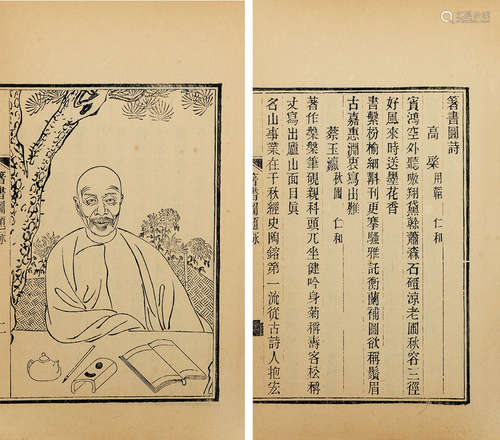 箸書圖詩
高 仁和
賓鴻空外聽嗷翔黛蕭森石磴涼老圃秋容三徑
好風來時送墨花香
書繫枌榆細斠刊更搴騷雅託衡蘭補圖欲稱鬚眉
古嘉惠淵衷寫出難
蔡玉瀛 秋圃 仁和
著作筆硯親科頭兀坐健吟身菊稱壽客松稱
丈寫出廬山面目眞
名山事業在千秋經史陶鎔第一流從古詩人抱宏
箸書圖題詠
箸書圖題詠